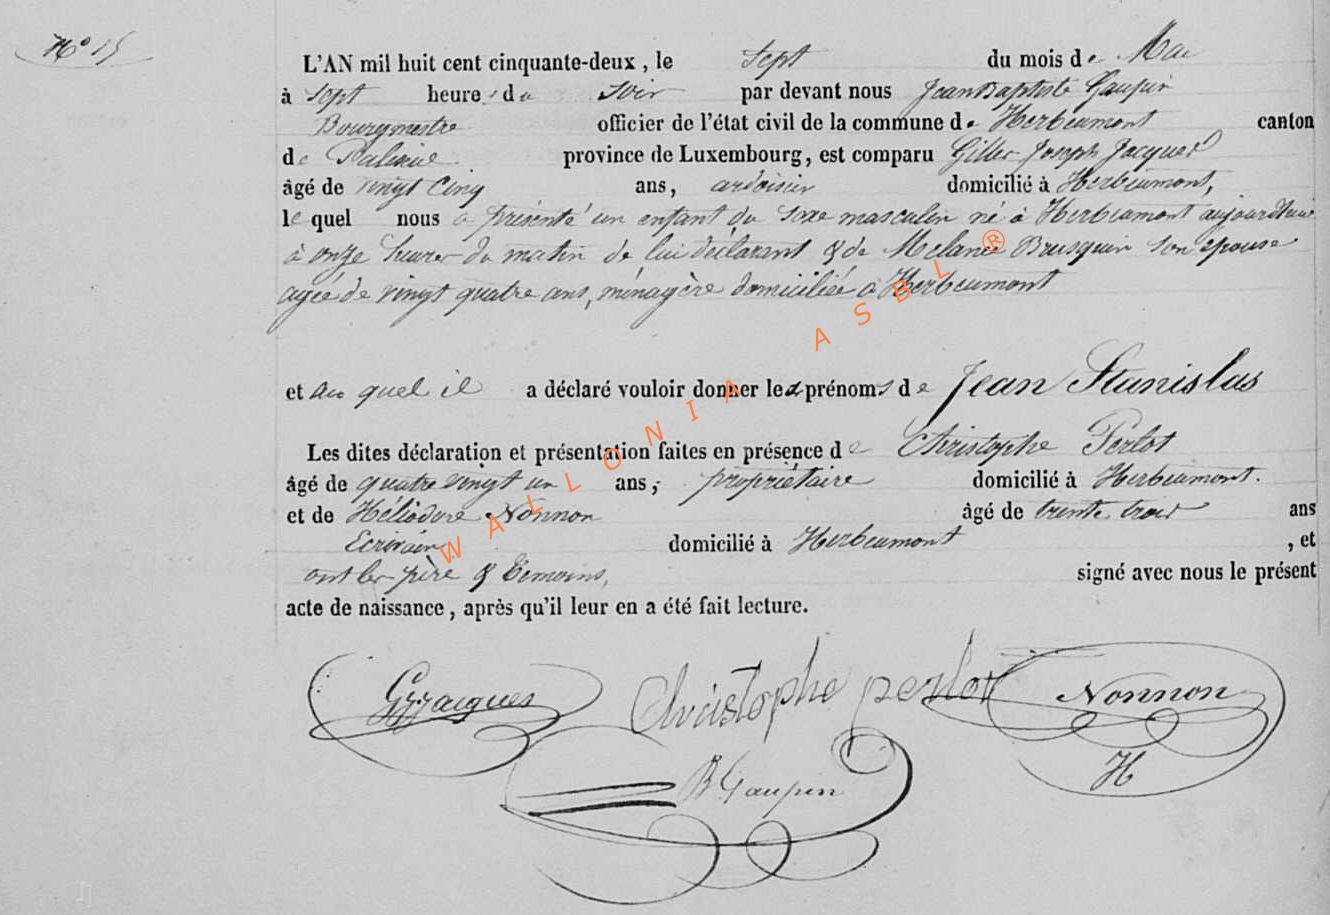 N° 15
L'AN mil huit cent cinquante-deux, le sept du mois de Mai
à sept heures du soir par devant nous Jean Baptiste Gaupin
Bourgmestre officier de l'état civil de la commune de Herbeumont canton
de Paliseul province de Luxembourg, est comparu Gilles Joseph Jacques
âgé de vingt cinq ans, ardoisier domicilié à Herbeumont,
lequel nous a présenté un enfant du sexe masculin né à Herbeumont aujourd'hui
à onze heures du matin de lui déclarant & de Melanie Brusquin son epouse
agée de vingt quatre ans, ménagère domiciliée à Herbeumont
et au quel il a déclaré vouloir donner les prénoms de Jean Stanislas
Les dites déclaration et présentation faites en présence de Christophe Perlot
âgé de quatre vingt un ans, propriétaire domicilié à Herbeumont.
et de Héliodore Nonnon âgé de trente trois ans
Ecrivain domicilié à Herbeumont, et
ont les père & témoins, signé avec nous le présent
acte de naissance, après qu'il leur en a été fait lecture.
GJJacques Christophe perlot Nonnon
H
B Gaupin
WALLONIA ASBL ®